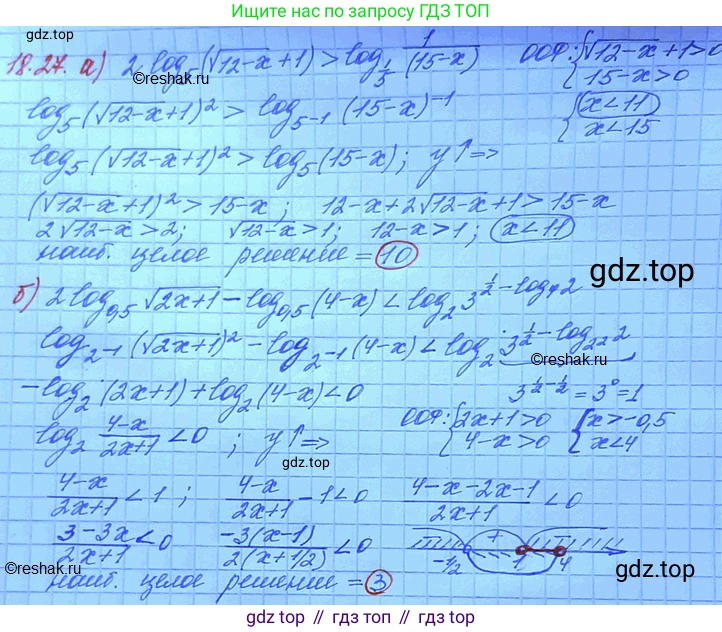 Ищите нас по запросу ГДЗ ТОП
gdz.top
18.27. а) 2 log₅(√(12-x)+1) > log_{1/5} 1/(15-x)   ООФ: {√(12-x)+1>0
15-x>0
©reshak.ru
log₅(√(12-x)+1)² > log_{5⁻¹}(15-x)⁻¹   {x<11
x<15
log₅(√(12-x)+1)² > log₅(15-x); y↑ ⇒
(√(12-x)+1)² > 15-x; 12-x+2√(12-x)+1 > 15-x
2√(12-x)>2; √(12-x)>1; 12-x>1; x<11
наиб. целое решение = 10
gdz.top
б) 2log_{0,5}√(2x+1) - log_{0,5}(4-x) < log₂ 3^{1/2 - log₄2}
log_{2⁻¹}(√(2x+1))² - log_{2⁻¹}(4-x) < log₂ 3^{1/2 - log_{2²}2}
©reshak.ru
-log₂(2x+1)+log₂(4-x)<0   3^{1/2-1/2} = 3⁰ = 1
log₂ (4-x)/(2x+1) < 0; y↑ ⇒   ООФ: {2x+1>0   {x>-0,5
4-x>0   x<4
gdz.top
(4-x)/(2x+1) < 1; (4-x)/(2x+1) - 1 < 0   (4-x-2x-1)/(2x+1) < 0
(3-3x)/(2x+1) < 0   -3(x-1)/2(x+1/2) < 0   + -1/2 1 4
©reshak.ru
наиб. целое решение = 3
gdz.top
gdz.top // гдз.топ // gdz.top